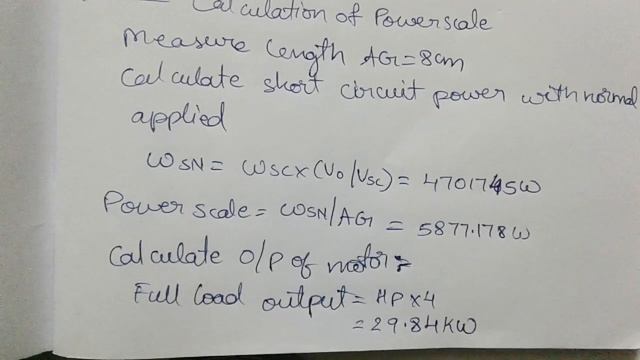 Calculation of Powerscale
Measure length AG=8cm
Calculate short circuit power with normal
applied
WSN = WSC×(V0/VSC) = 47017.45W
Power scale = WSN/AG = 5877.178W
Calculate O/P of motor:
Full load output = HP×4
= 29.84KW